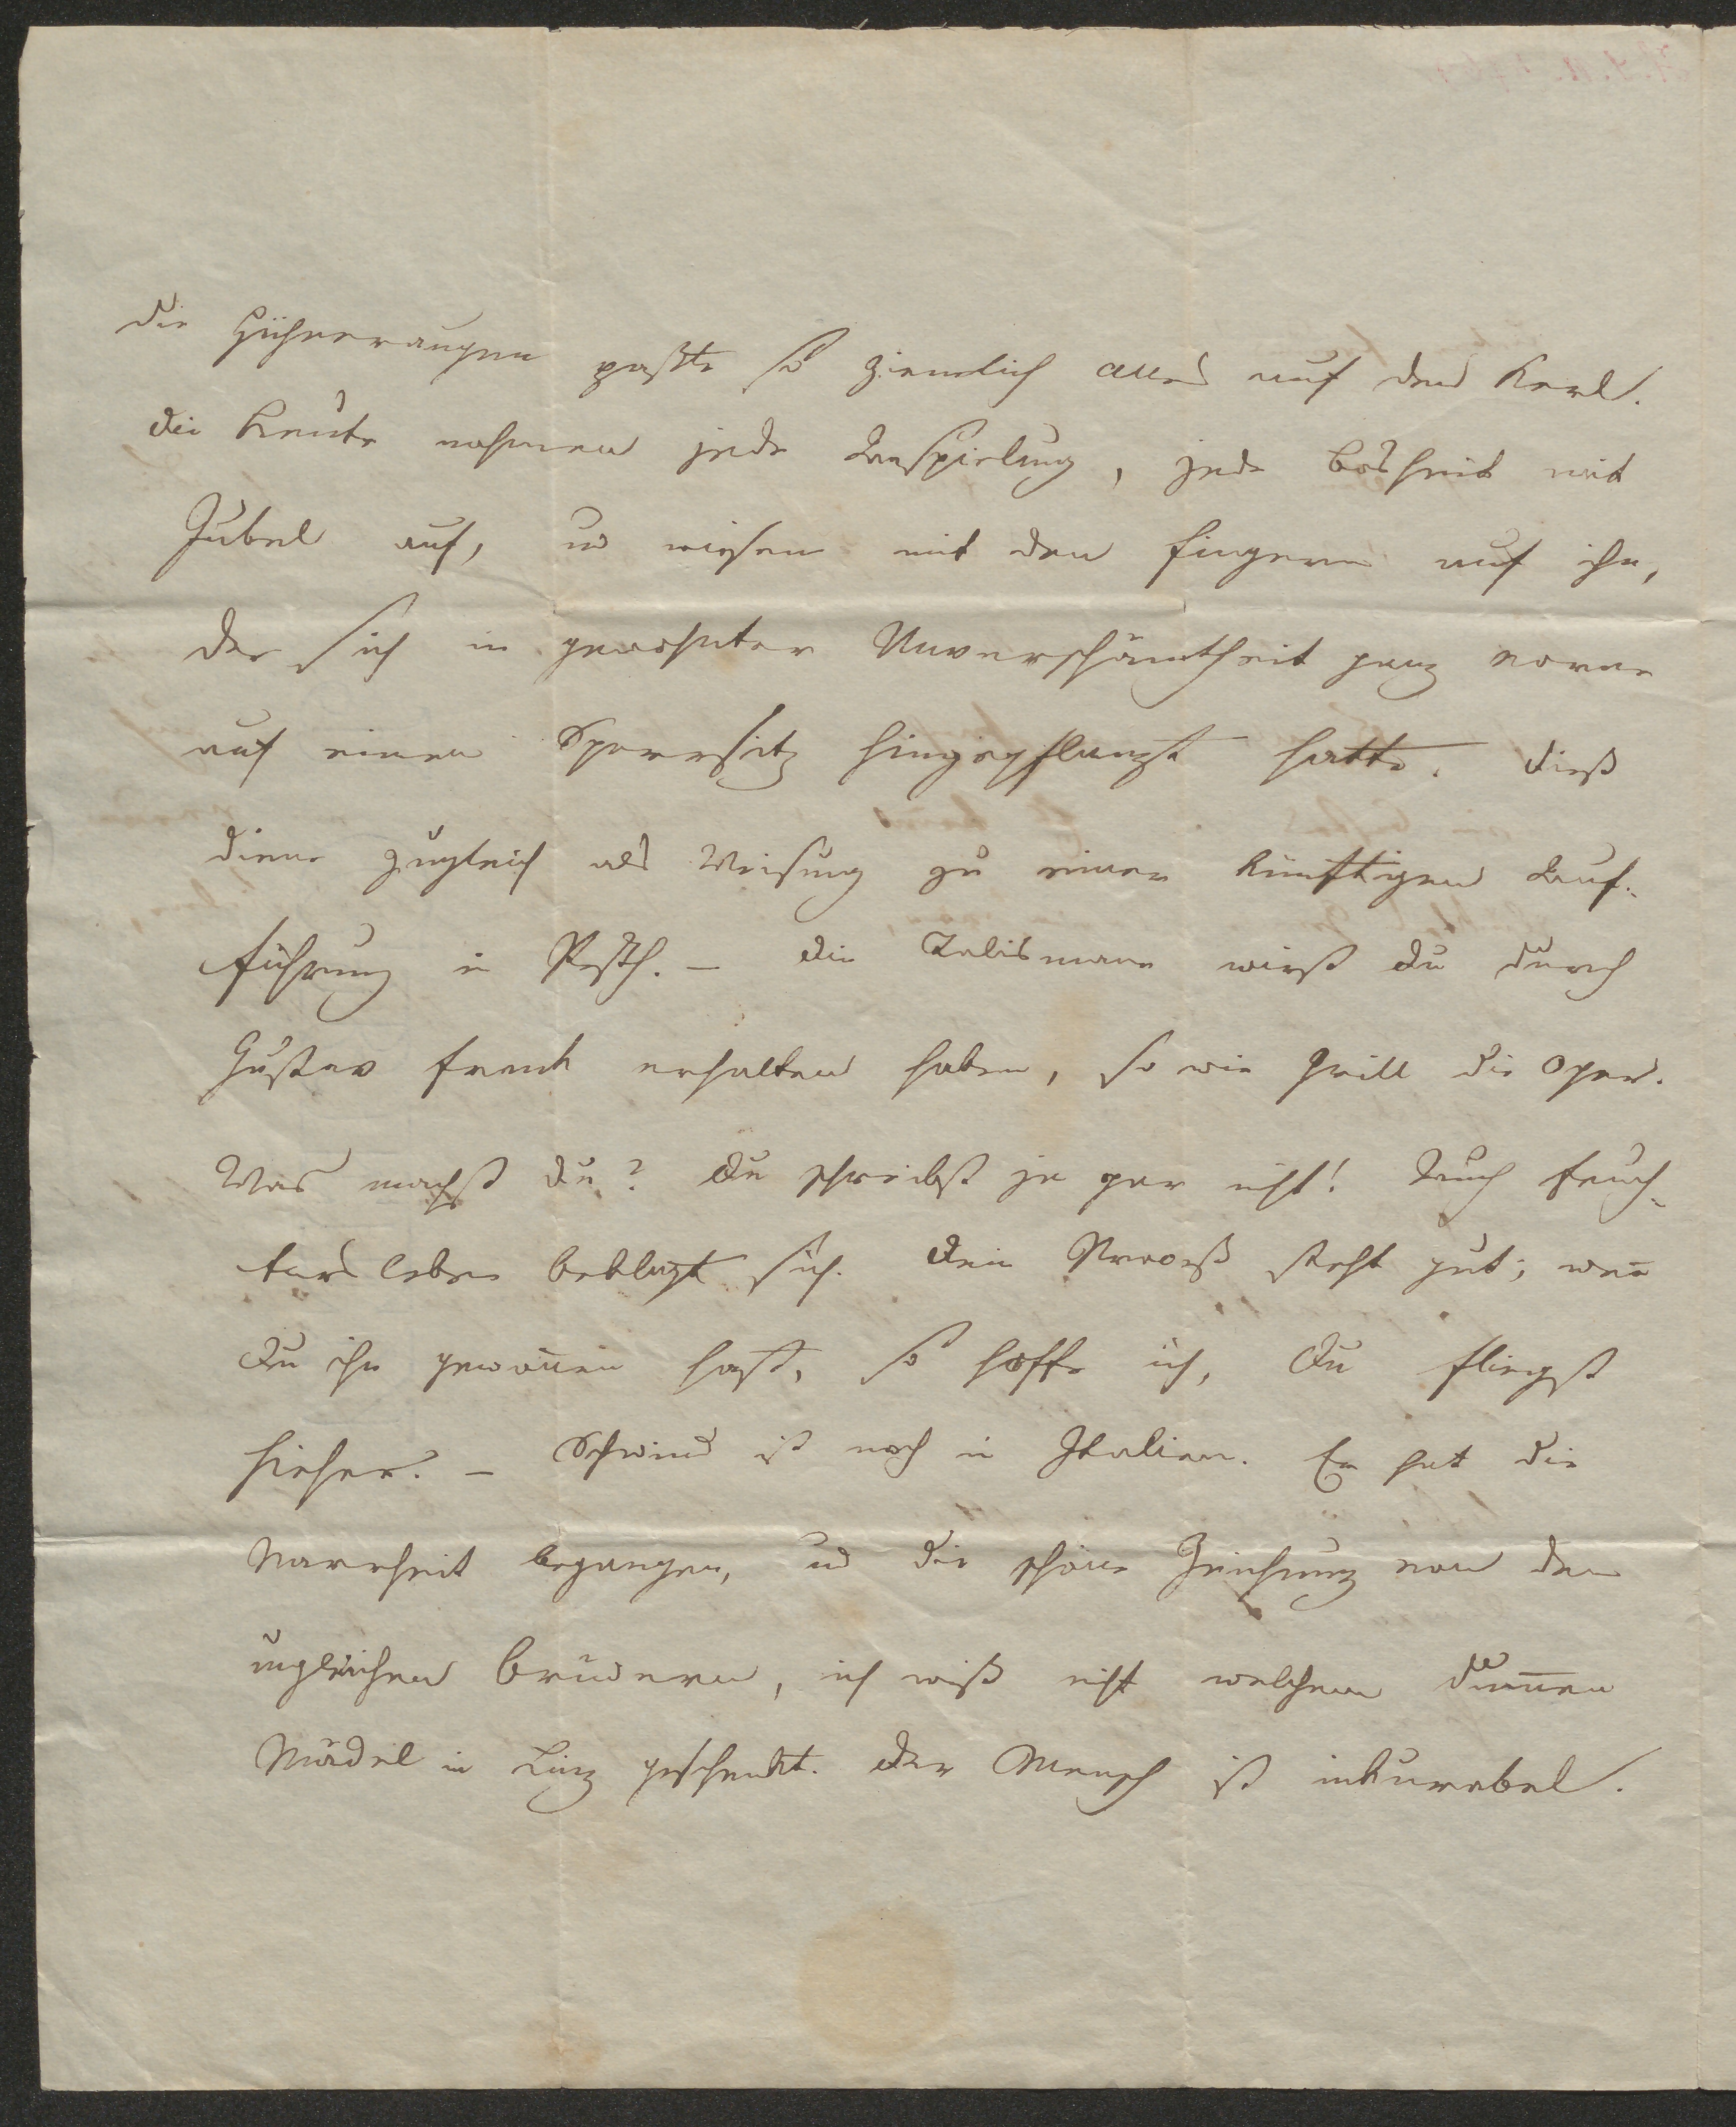 die Hühneraugen paßte so ziemlich alles auf den Kerl.
Die Leute nahmen jede Anspielung, jede Bosheit mit
Jubel auf, und wiesen mit den Fingern auf ihn,
der sich in gewohnter Unverschämtheit ganz vorne
auf einen Sperrsitz hingepflanzt hatte. Dieß
diene zugleich als Weisung zu einer künftigen Auf-
führung in Pesth. – Die Talismane wirst Du durch
Gustav Frank erhalten haben, so wie Grill die Oper.
Was machst Du? Du schreibst ja gar nicht! Auch Feuch-
tersleben beklagt sich. Dein Prozeß steht gut; wenn
Du ihn gewonnen hast, so hoffe ich, Du fliegst
hieher. – Schwind ist noch in Italien. Er hat die
Narrheit begangen, und die schöne Zeichnung von den
ungleichen Brüdern, ich weiß nicht welchem dummen
Mädel in Linz geschenkt. Der Mensch ist inkurabel.